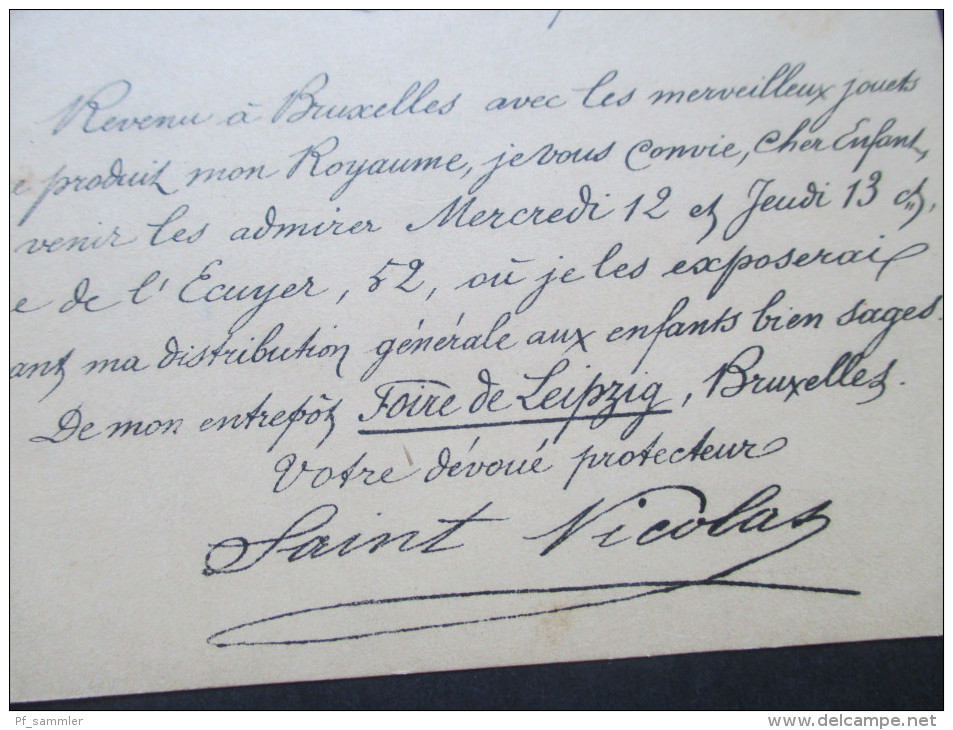 Revenu à Bruxelles avec les merveilleux jouets
e produit mon Royaume, je vous convie, Cher Enfant,
venir les admirer Mercredi 12 et Jeudi 13 ct,
e de l'Ecuyer, 52, où je les exposerai
ant ma distribution générale aux enfants bien sages.
De mon entrepôt Foire de Leipzig, Bruxelles.
Votre dévoué protecteur
Saint Nicolas
Pf_sammler
www.delcampe.net